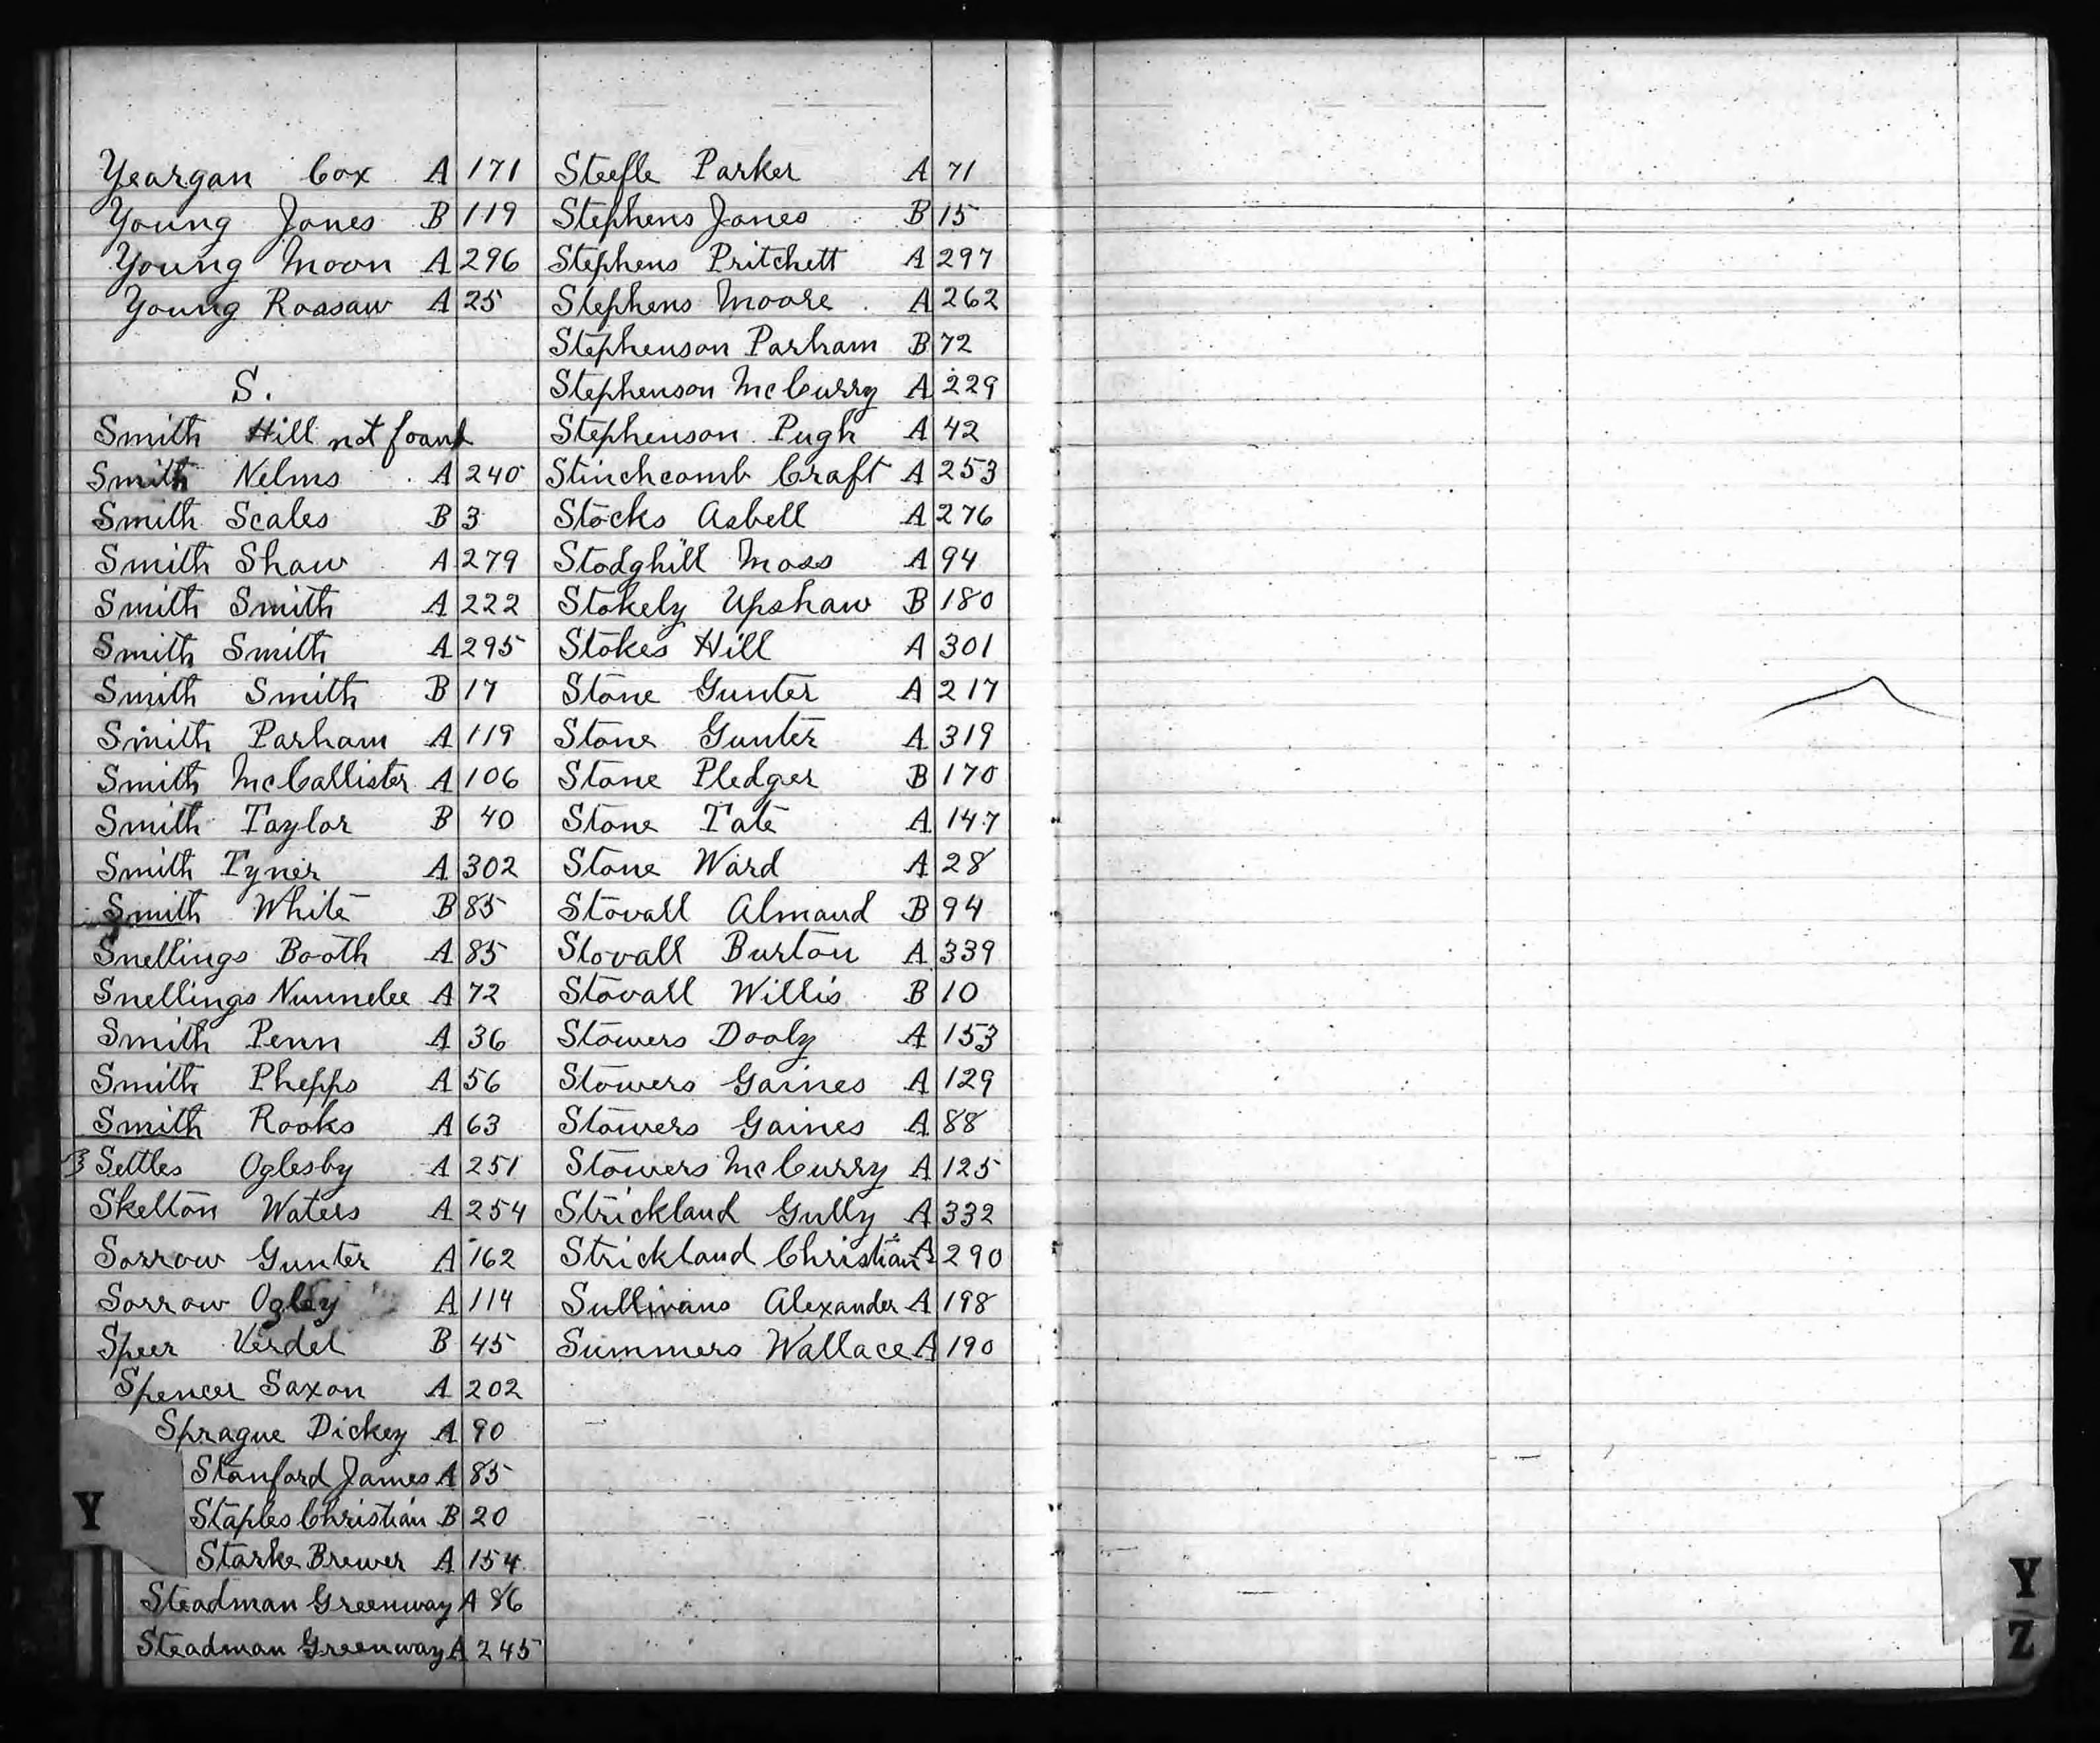 Yeargan Cox A 171
Young Jones B 119
Young Moon A 296
Young Rossaw A 25
S.
Smith Hill not found
Smith Nelms A 240
Smith Scales B 3
Smith Shaw A 279
Smith Smith A 222
Smith Smith A 295
Smith Smith B 17
Smith Parham A 119
Smith McCallister A 106
Smith Taylor B 40
Smith Tyner A 302
Smith White B 85
Snellings Booth A 85
Snellings Nunnelee A 72
Smith Penn A 36
Smith Phepps A 56
Smith Rooks A 63
Settles Oglesby A 251
Skelton Waters A 254
Sorrow Gunter A 162
Sorrow A 114
Speer Verdel B 45
Spencer Saxon A 202
Sprague Dickey A 90
Stanford James A 85
Staples Christian B 20
Starke Brewer A 154
Steadman Greenway A 86
Steadman Greenway A 245
Steefle Parker A 71
Stephens Jones B 15
Stephens Pritchett A 297
Stephens Moore A 262
Stephenson Parham B 72
Stephenson McCurry A 229
Stephenson Pugh A 42
Stinchcomb Craft A 253
Stocks Asbell A 276
Stodghill Moss A 94
Stokely Upshaw B 180
Stokes Hill A 301
Stone Gunter A 217
Stone Gunter A 319
Stone Pledger B 170
Stone Tate A 147
Stone Ward A 28
Stovall Almand B 94
Stovall Burton A 339
Stovall Willis B 10
Stowers Dooly A 153
Stowers Gaines A 129
Stowers Gaines A 88
Stowers McCurry A 125
Strickland Gully A 332
Strickland Christian A 290
Sullivans Alexander A 198
Summers Wallace A 190
Y
Y
Z